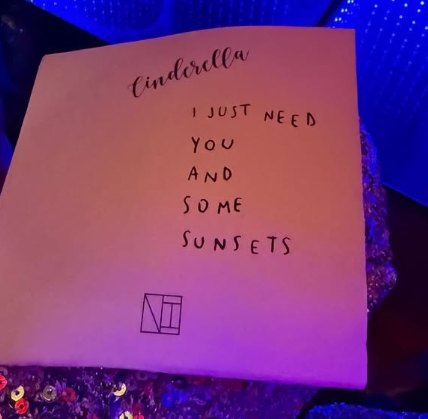 Cinderella
I JUST NEED
YOU
AND
SOME
SUNSETS